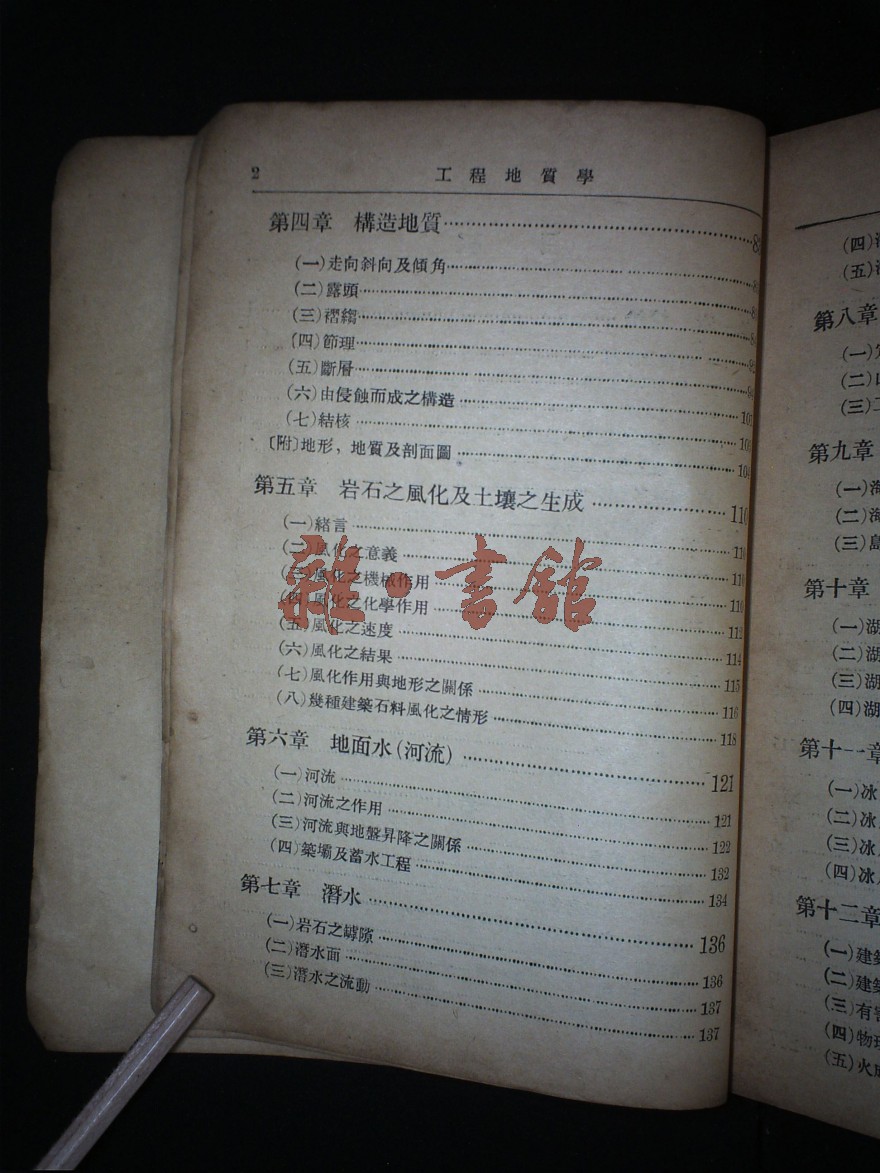 2 工程地質學
第四章 構造地質
(一)走向斜向及傾角
(二)露頭
(三)褶縐
(四)節理
(五)斷層
(六)由侵蝕而成之構造 101
(七)結核 103
〔附〕地形，地質及剖面圖 104
第五章 岩石之風化及土壤之生成 110
(一)緒言 110
(二)風化之意義 110
(三)風化之機械作用 110
(四)風化之化學作用 112
(五)風化之速度 114
(六)風化之結果 115
(七)風化作用與地形之關係 116
(八)幾種建築石料風化之情形 118
第六章 地面水(河流) 121
(一)河流 121
(二)河流之作用 122
(三)河流與地盤昇降之關係 132
(四)築壩及蓄水工程 134
第七章 潛水 136
(一)岩石之罅隙 136
(二)潛水面 137
(三)潛水之流動 137
雜·書館
(四)
(五)
第八章
(一)
(二)
(三)
第九章
(一)海
(二)海
(三)島
第十章
(一)湖
(二)湖
(三)湖
(四)湖
第十一章
(一)冰
(二)冰
(三)冰
(四)冰
第十二章
(一)建築
(二)建築
(三)有害
(四)物理
(五)火成